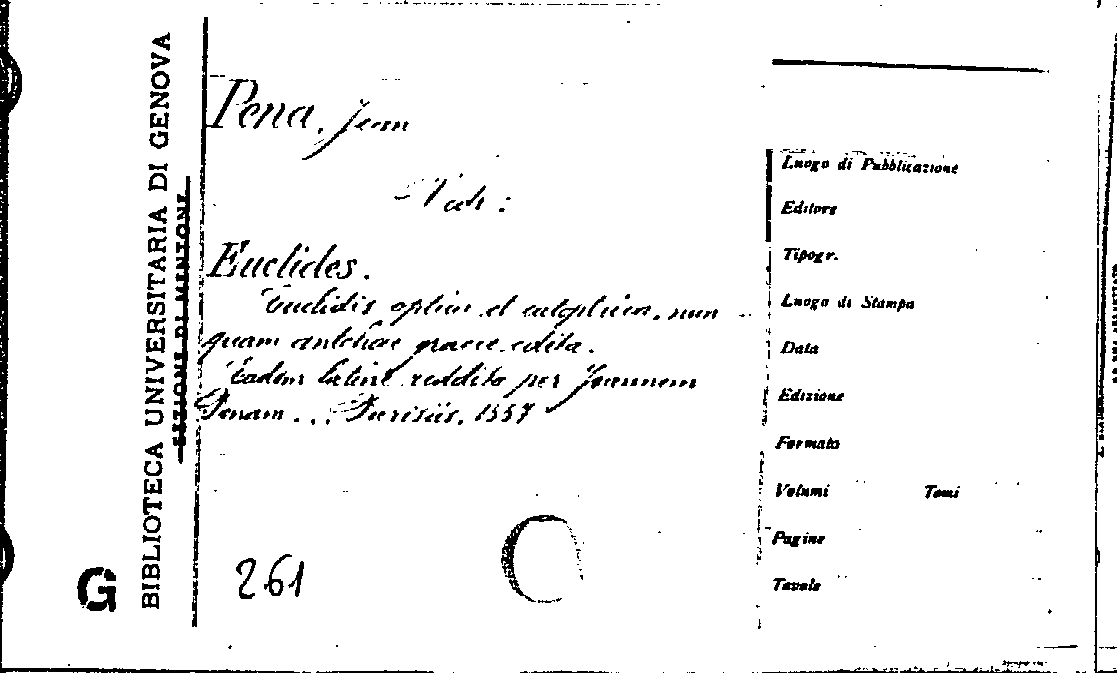 BIBLIOTECA UNIVERSITARIA DI GENOVA
SEZIONE DI MENTONE
G
Pena, Jean
Vedi:
Euclides.
Euclidis optica et catoptrica, nun
quam antehac graece edita.
Eadem latine reddita per Joannem
Penam... Parisiis, 1557
261
Luogo di Pubblicazione
Editore
Tipogr.
Luogo di Stampa
Data
Edizione
Formato
Volumi Tomi
Pagine
Tavole